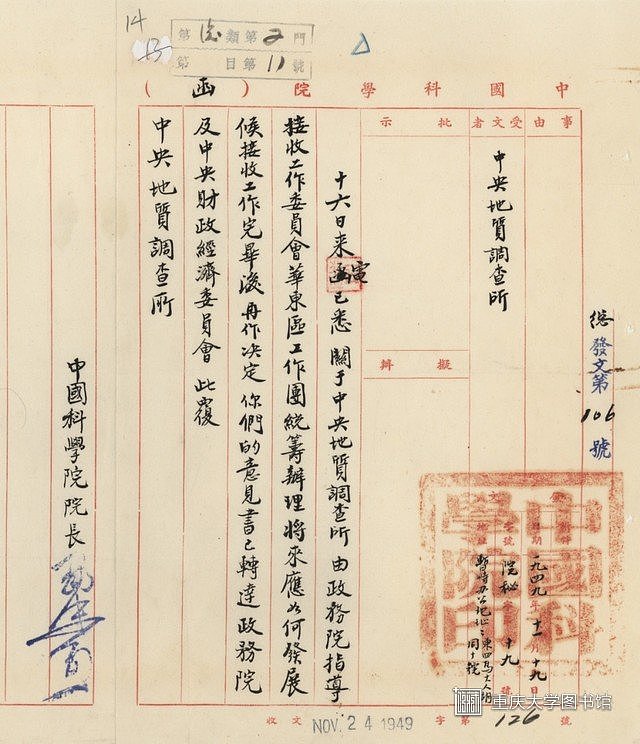 14
13
第 類第2門
第 目第11號
中國科學院(函)
事由
受文者
中央地質調查所
批示
擬辦
總發文第106號
中國科學院印
發文
附件
日期 一九四九年十一月十九日
字號 院秘字十九號
暫時办公地址:東四馬大人胡同十號
十六日来函已悉 關于中央地質調查所 由政務院指導
寅
接收工作委員會華東區工作團統筹辦理將來應如何發展
候接收工作完畢後再作决定 你們的意見書已轉達政務院
及中央財政經濟委員會 此覆
中央地質調查所
中國科學院院長
收文 字第126號
NOV. 24 1949
重庆大学图书馆